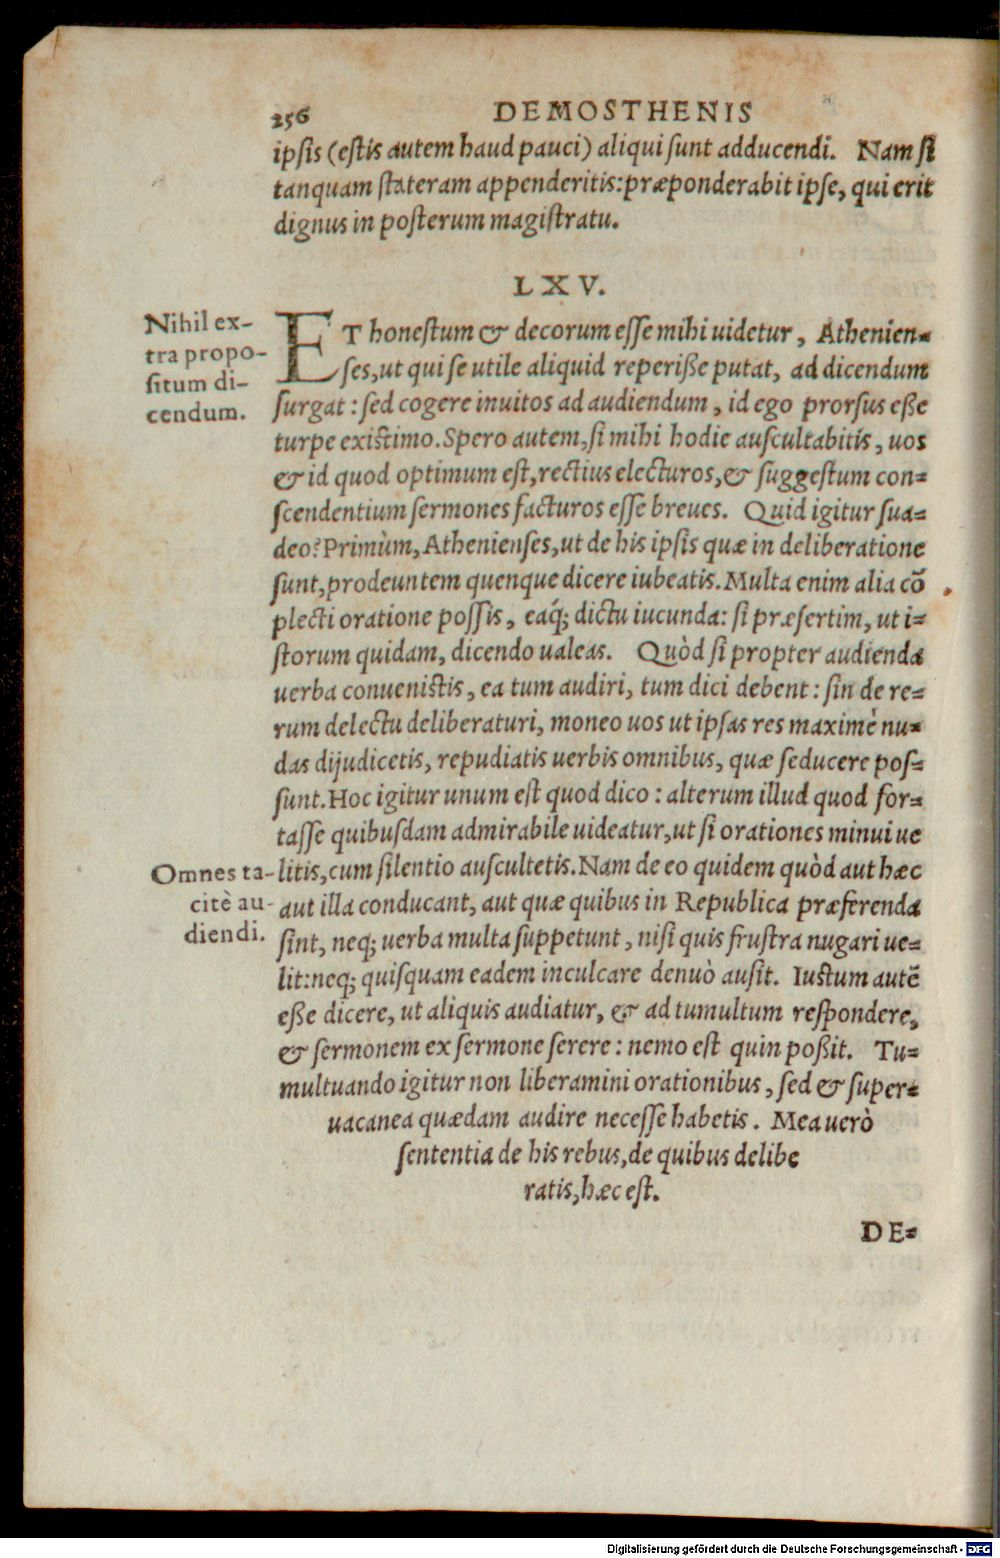 256 DEMOSTHENIS
ipsis (estis autem haud pauci) aliqui sunt adducendi. Nam si
tanquam stateram appenderitis: præponderabit ipse, qui erit
dignus in posterum magistratu.
LXV.
Nihil ex-
tra propo-
situm di-
cendum.
ET honestum & decorum esse mihi uidetur, Athenien-
ses, ut qui se utile aliquid reperiße putat, ad dicendum
surgat: sed cogere inuitos ad audiendum, id ego prorsus eße
turpe existimo. Spero autem, si mihi hodie auscultabitis, uos
& id quod optimum est, rectius electuros, & suggestum con-
scendentium sermones facturos esse breues. Quid igitur sua-
deo? Primùm, Athenienses, ut de his ipsis quæ in deliberatione
sunt, prodeuntem quenque dicere iubeatis. Multa enim alia cõ
plecti oratione possis, eaq́; dictu iucunda: si præsertim, ut i-
storum quidam, dicendo ualeas. Quòd si propter audienda
uerba conuenistis, ea tum audiri, tum dici debent: sin de re-
rum delectu deliberaturi, moneo uos ut ipsas res maximè nu-
das dijudicetis, repudiatis uerbis omnibus, quæ seducere pos-
sunt. Hoc igitur unum est quod dico: alterum illud quod for-
tasse quibusdam admirabile uideatur, ut si orationes minui ue
litis, cum silentio auscultetis. Nam de eo quidem quòd aut hæc
Omnes ta-
citè au-
diendi.
aut illa conducant, aut quæ quibus in Republica præferenda
sint, neq; uerba multa suppetunt, nisi quis frustra nugari ue-
lit: neq; quisquam eadem inculcare denuò ausit. Iustum autẽ
eße dicere, ut aliquis audiatur, & ad tumultum respondere,
& sermonem ex sermone serere: nemo est quin poßit. Tu-
multuando igitur non liberamini orationibus, sed & super-
uacanea quædam audire necesse habetis. Mea uerò
sententia de his rebus, de quibus delibe
ratis, hæc est.
DE-
Digitalisierung gefördert durch die Deutsche Forschungsgemeinschaft - DFG